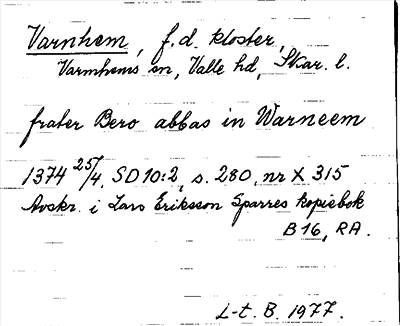 Varnhem, f.d. kloster,
Varnhems sn, Valle hd, Skar. l.
frater Bero abbas in Warneem
1374 25/4, SD 10:2, s. 280, nr X 315
Avskr. i Lars Eriksson Sparres kopiebok
B 16, RA.
L-t. B. 1977.